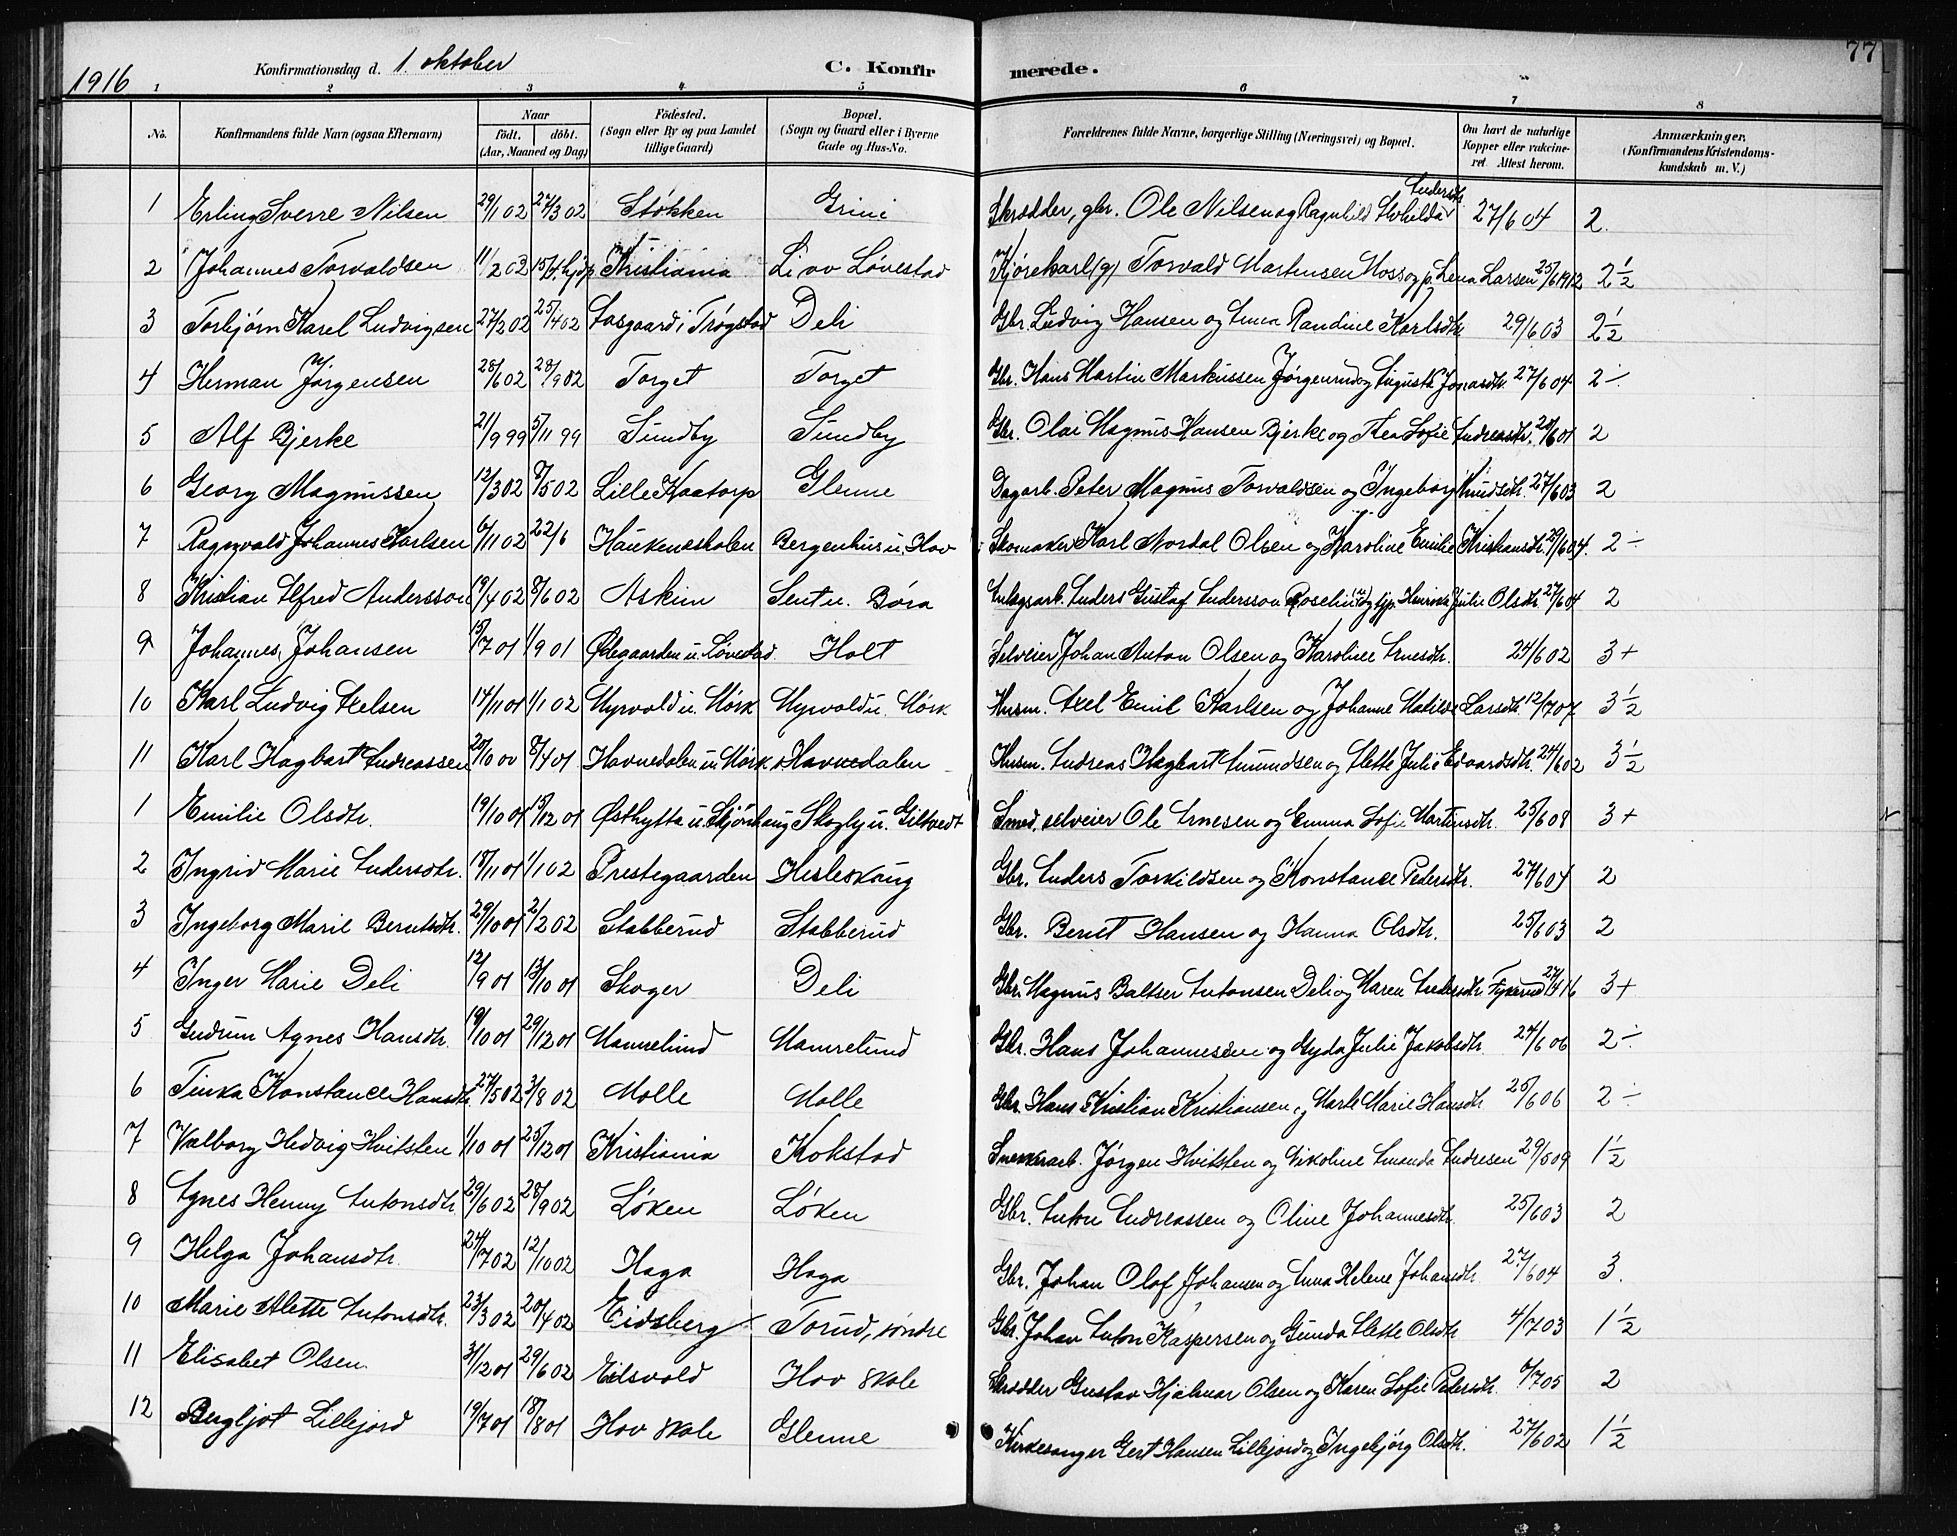 77
1916 Konfirmationsdag d. 1. oktober C. Konfirmerede.
1 2 3 4 5 6 7 8
No. Konfirmandens fulde Navn (ogsaa Efternavn) Naar født, døbt. (Aar, Maaned og Dag) Fødested. (Sogn eller By og paa Landet tillige Gaard) Bopæl. (Sogn og Gaard eller i Byerne Gade og Hus-No. Forældrenes fulde Navne, borgerlige Stilling (Næringsvei) og Bopæl. Om havt de naturlige Kopper eller vakcineret Attest herom. Anmærkninger, (Konfirmandens Kristendomskundskab m. V.)
1 Erling Sverre Nilsen 29/1 02 27/3 02 Støkken Grini Skrædder, gbr. Ole Nilsen og Ragnhild Andersdtr. 27/6 04 2.
2 Johannes Torvaldsen 11/2 02 Kristiania Li av Løvestad Kjørekarl (g) Torvald Martinsen Moss og p. Lena Larsen 25/6 1912 2 1/2
3 Torbjørn Karel Ludvigsen 27/2 02 25/4 02 Aasgaard i Trøgstad Deli Gbr. Ludvig Hansen og Anna Randine Karlsdtr. 29/6 03 2 1/2
4 Herman Jørgensen 28/6 02 28/9 02 Torget Torget Gbr. Hans Martin Markussen Jørgensen og Auguste Jonasdtr. 27/6 04. 2 ÷
5 Alf Bjerke 21/9 99 5/11 99 Sundby Sundby Gbr. Olai Magnus Hansen Bjerke og Thea Sofie Andreasdtr. 28/6 01 2
6 Georg Magnussen 12/3 02 8/5 02 Lille Kaatorp Glenne Dagarb. Peter Magnus Torvaldsen og Ingeborg Knudsdtr. 27/6 03 2
7 Ragnvald Johannes Karlsen 6/11 02 22/6 Haukeneskolen Bergenhus u. Hov Skomaker Karl Nordal Olsen og Karoline Emilie Kristiansdtr. 29/6 04. 2 ÷
8 Kristian Alfred Anderssen 19/4 02 8/6 02 Askim Sent u. Børa Anlegsarb. Anders Gustaf Andersson Roselin og hjp. Henrika Julie Olsdtr. 27/6 04 2
9 Johannes Johansen 15/7 01 1/9 01 Ødegaarden u. Løvestad Holt Selveier Johan Anton Olsen og Karoline Arnesdtr. 24/6 02 3+
10 Karl Ludvig Axelsen 14/11 01 1/1 02 Myrvold u. Mørk Myrvold u. Mørk Husm. Axel Emil Karlsen og Johanne Matilde Larsdtr. 12/7 07 3 1/2
11 Karl Hagbart Andreassen 20/10 00 8/4 01 Havnedalen u. Mørk Havnedalen Husm. Andreas Hagbart Amundsen og Alette Julie Edvardsdtr. 24/6 02 3 1/2
1 Emilie Olsdtr. 19/10 01 15/12 01 Østhytta u. Skjønhaug Skogly u. Giltvedt Smed, selveier Ole Arnesen og Emma Sofie Martinsdtr. 25/6 08 3+
2 Ingrid Marie Andersdtr. 18/11 01 1/1 02 Prestegaarden Hesleskaug Gbr. Anders Torkildsen og Konstance Pedersdtr. 27/6 04 2
3 Ingeborg Marie Berntsdtr. 29/10 01 2/2 02 Stabberud Stabberud Gbr. Bernt Hansen og Hanna Olsdtr. 25/6 03 2
4 Inger Marie Deli 12/9 01 13/10 01 Skoger Deli Gbr. Magnus Baltser Antonsen Deli og Maren Andersdtr. Fykerud 27/4 16 3+
5 Gudrun Agnes Hansdtr. 19/10 01 29/12 01 Mamrelund Mamrelund Gbr. Hans Johannesen og Gyda Julie Jakobsdtr. 24/6 06 2 ÷
6 Tinka Konstance Hansdtr. 27/5 02 3/8 02 Molle Molle Gbr. Hans Kristian Kristiansen og Marte Marie Hansdtr. 25/6 06 2 ÷
7 Valborg Hedvig Hvitsten 1/10 01 25/12 01 Kristiania Kokstad Snekkerarb. Jørgen Hvitsten og Nikoline Amanda Andresen 29/5 09 1 1/2
8 Agnes Henny Antonsdtr. 29/6 02 28/9 02 Løken Løken Gbr. Anton Andreassen og Oline Johannesdtr. 25/6 03 2
9 Helga Johansdtr. 24/7 02 12/10 02 Haga Haga Gbr. Johan Olaf Johansen og Anna Helene Johansdtr. 27/6 04 3.
10 Marie Alette Antonsdtr. 23/3 02 20/4 02 Eidsberg Torud, søndre Gbr. Johan Anton Kaspersen og Gunda Alette Olsdtr. 4/7 03 1 1/2
11 Elisabet Olsen 31/12 01 29/6 02 Eidsvold Hov skole Skrædder Gustav Hjalmar Olsen og Karen Sofie Pedersdtr. 6/7 05 2
12 Bergljot Lillejord 19/7 01 18/8 01 Hov skole Glenne Kirkesanger Gert Hansen Lillejord og Ingebjørg Olsdtr. 27/6 02 1 1/2